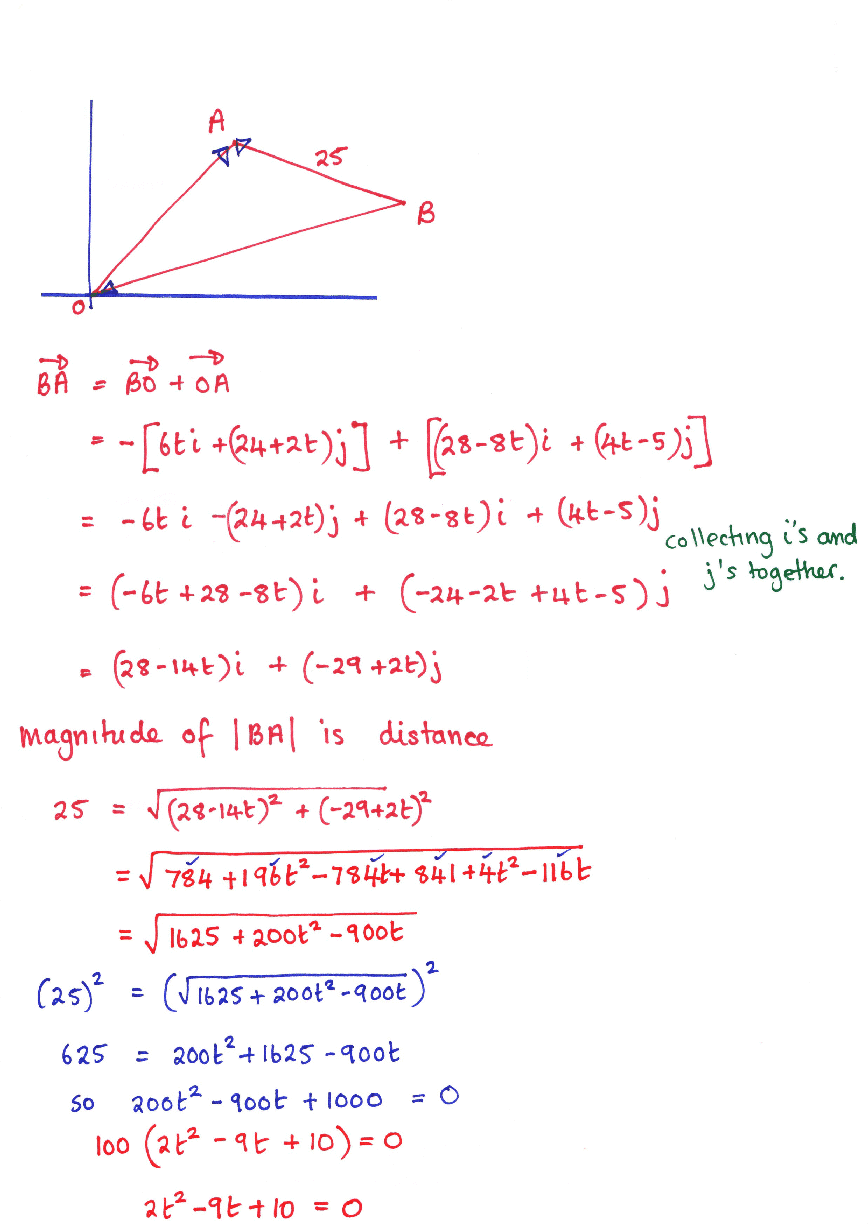 A
25
B
O
BA = BO + OA
= -[6ti +(24+2t)j] + [(28-8t)i + (4t-5)j]
= -6t i -(24+2t)j + (28-8t)i + (4t-5)j
collecting i's and
j's together.
= (-6t +28 -8t) i + (-24-2t +4t-5) j
= (28-14t)i + (-29 +2t)j
magnitude of |BA| is distance
25 = √(28-14t)² + (-29+2t)²
= √784 +196t² -784t + 841 +4t² -116t
= √1625 + 200t² -900t
(25)² = (√1625 + 200t² -900t)²
625 = 200t² + 1625 -900t
so 200t² - 900t + 1000 = 0
100 (2t² - 9t + 10) = 0
2t² -9t +10 = 0